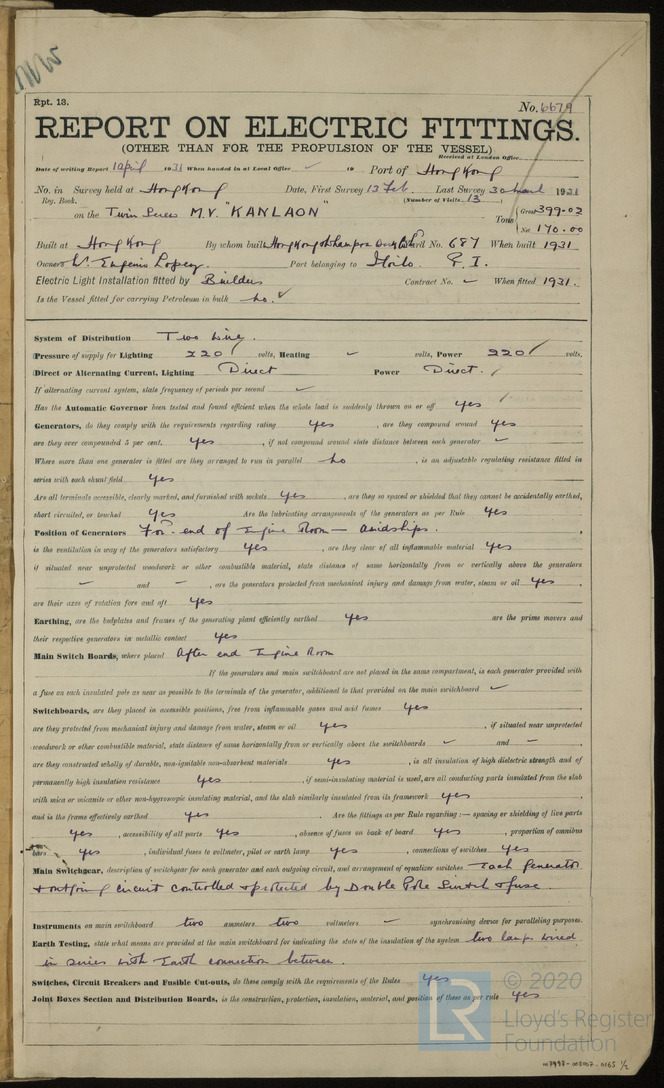 Rpt. 13.
No. 6679
REPORT ON ELECTRIC FITTINGS.
(OTHER THAN FOR THE PROPULSION OF THE VESSEL)
Received at London Office
Date of writing Report 1 April 1931 When handed in at Local Office ✓ 19 Port of Hong Kong
No. in Survey held at Hong Kong Date, First Survey 13 Feb. Last Survey 30 March 1931
Reg. Book. (Number of Visits 13
on the Twin Screw M.V. "KANLAON" Tons Gross 399.02
Net 170.00
Built at Hong Kong By whom built Hongkong & Whampoa Dock Co Yard No. 687 When built 1931
Owners W. Eugenio Lopez. Port belonging to Iloilo P. I.
Electric Light Installation fitted by Builders Contract No. - When fitted 1931.
Is the Vessel fitted for carrying Petroleum in bulk No. ✓
System of Distribution Two wire.
Pressure of supply for Lighting 220 volts, Heating - volts, Power 220 volts.
Direct or Alternating Current, Lighting Direct Power Direct.
If alternating current system, state frequency of periods per second -
Has the Automatic Governor been tested and found efficient when the whole load is suddenly thrown on or off yes
Generators, do they comply with the requirements regarding rating yes , are they compound wound yes
are they over compounded 5 per cent. yes , if not compound wound state distance between each generator -
Where more than one generator is fitted are they arranged to run in parallel No , is an adjustable regulating resistance fitted in
series with each shunt field yes
Are all terminals accessible, clearly marked, and furnished with sockets yes , are they so spaced or shielded that they cannot be accidentally earthed,
short circuited, or touched yes Are the lubricating arrangements of the generators as per Rule yes
Position of Generators For'd end of Engine Room - amidships.
is the ventilation in way of the generators satisfactory yes , are they clear of all inflammable material yes
if situated near unprotected woodwork or other combustible material, state distance of same horizontally from or vertically above the generators
- and - , are the generators protected from mechanical injury and damage from water, steam or oil yes ,
are their axes of rotation fore and aft yes
Earthing, are the bedplates and frames of the generating plant efficiently earthed yes are the prime movers and
their respective generators in metallic contact yes
Main Switch Boards, where placed After end Engine Room
If the generators and main switchboard are not placed in the same compartment, is each generator provided with
a fuse on each insulated pole as near as possible to the terminals of the generator, additional to that provided on the main switchboard -
Switchboards, are they placed in accessible positions, free from inflammable gases and acid fumes yes
are they protected from mechanical injury and damage from water, steam or oil yes , if situated near unprotected
woodwork or other combustible material, state distance of same horizontally from or vertically above the switchboards - and -
are they constructed wholly of durable, non-ignitable non-absorbent materials yes , is all insulation of high dielectric strength and of
permanently high insulation resistance yes , if semi-insulating material is used, are all conducting parts insulated from the slab
with mica or micanite or other non-hygroscopic insulating material, and the slab similarly insulated from its framework yes ,
and is the frame effectively earthed yes . Are the fittings as per Rule regarding :— spacing or shielding of live parts
yes , accessibility of all parts yes , absence of fuses on back of board yes , proportion of omnibus
bars yes , individual fuses to voltmeter, pilot or earth lamp yes , connections of switches yes
Main Switchgear, description of switchgear for each generator and each outgoing circuit, and arrangement of equalizer switches Each generator
& outgoing circuit controlled & protected by Double Pole Switch & fuse.
Instruments on main switchboard two ammeters two voltmeters - synchronising device for paralleling purposes.
Earth Testing, state what means are provided at the main switchboard for indicating the state of the insulation of the system two lamps wired
in series with Earth connection between.
Switches, Circuit Breakers and Fusible Cut-outs, do these comply with the requirements of the Rules yes
Joint Boxes Section and Distribution Boards, is the construction, protection, insulation, material, and position of these as per rule yes
LR © 2020
Lloyd's Register
Foundation
1/2